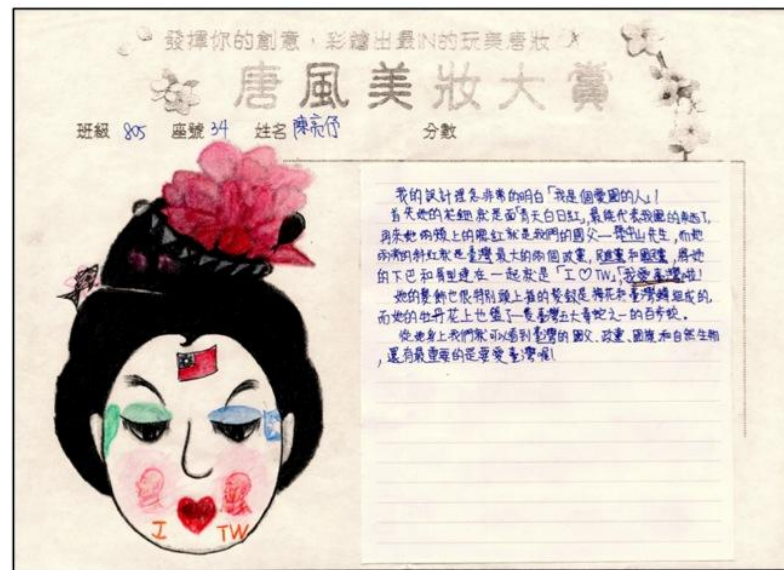 發揮你的創意，彩繪出最IN的玩美唐妝
唐風美妝大賞
班級 805 座號 34 姓名 陳亮伃 分數
我的設計理念非常的明白「我是個愛國的人」!
首先她的花鈿就是面「青天白日紅」,最能代表我國的東西了,
再來她兩頰上的腮紅就是我們的國父—孫中山先生,而她
兩旁的斜紅就是臺灣最大的兩個政黨,民進黨和國民黨,將她
的下巴和唇型連在一起就是「I♡TW」「我愛臺灣」啦!
她的髮飾也很特別頭上插的髮釵是梅花和臺灣 組成的,
而她的牡丹花上也盤了一隻臺灣五大毒蛇之一的百步蛇。
從她身上我們就可以看到臺灣的國父、政黨、國旗和自然生物
,還有最重要的是要愛臺灣喔!
I TW